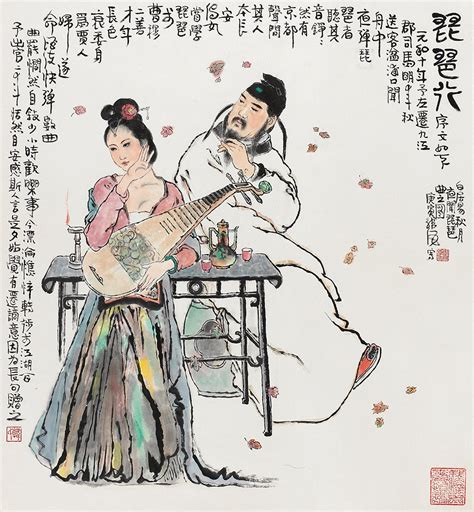 琵琶行
序文如下
元和十年予左遷九江
郡司馬明年秋
送客湓浦口聞
舟中
夜彈琵
琶者
聽其
音錚錚然
京都
聲問
其人
本長
安
倡女
嘗學
琵琶
於
曹
二善
才年
長色
衰委身
為賈人
婦遂
命酒使快彈數曲
曲罷憫然自敘少小時歡樂事今漂淪憔悴轉徙於江湖間
予出官二年恬然自安感斯人言是夕始覺有遷謫意因為長句贈之